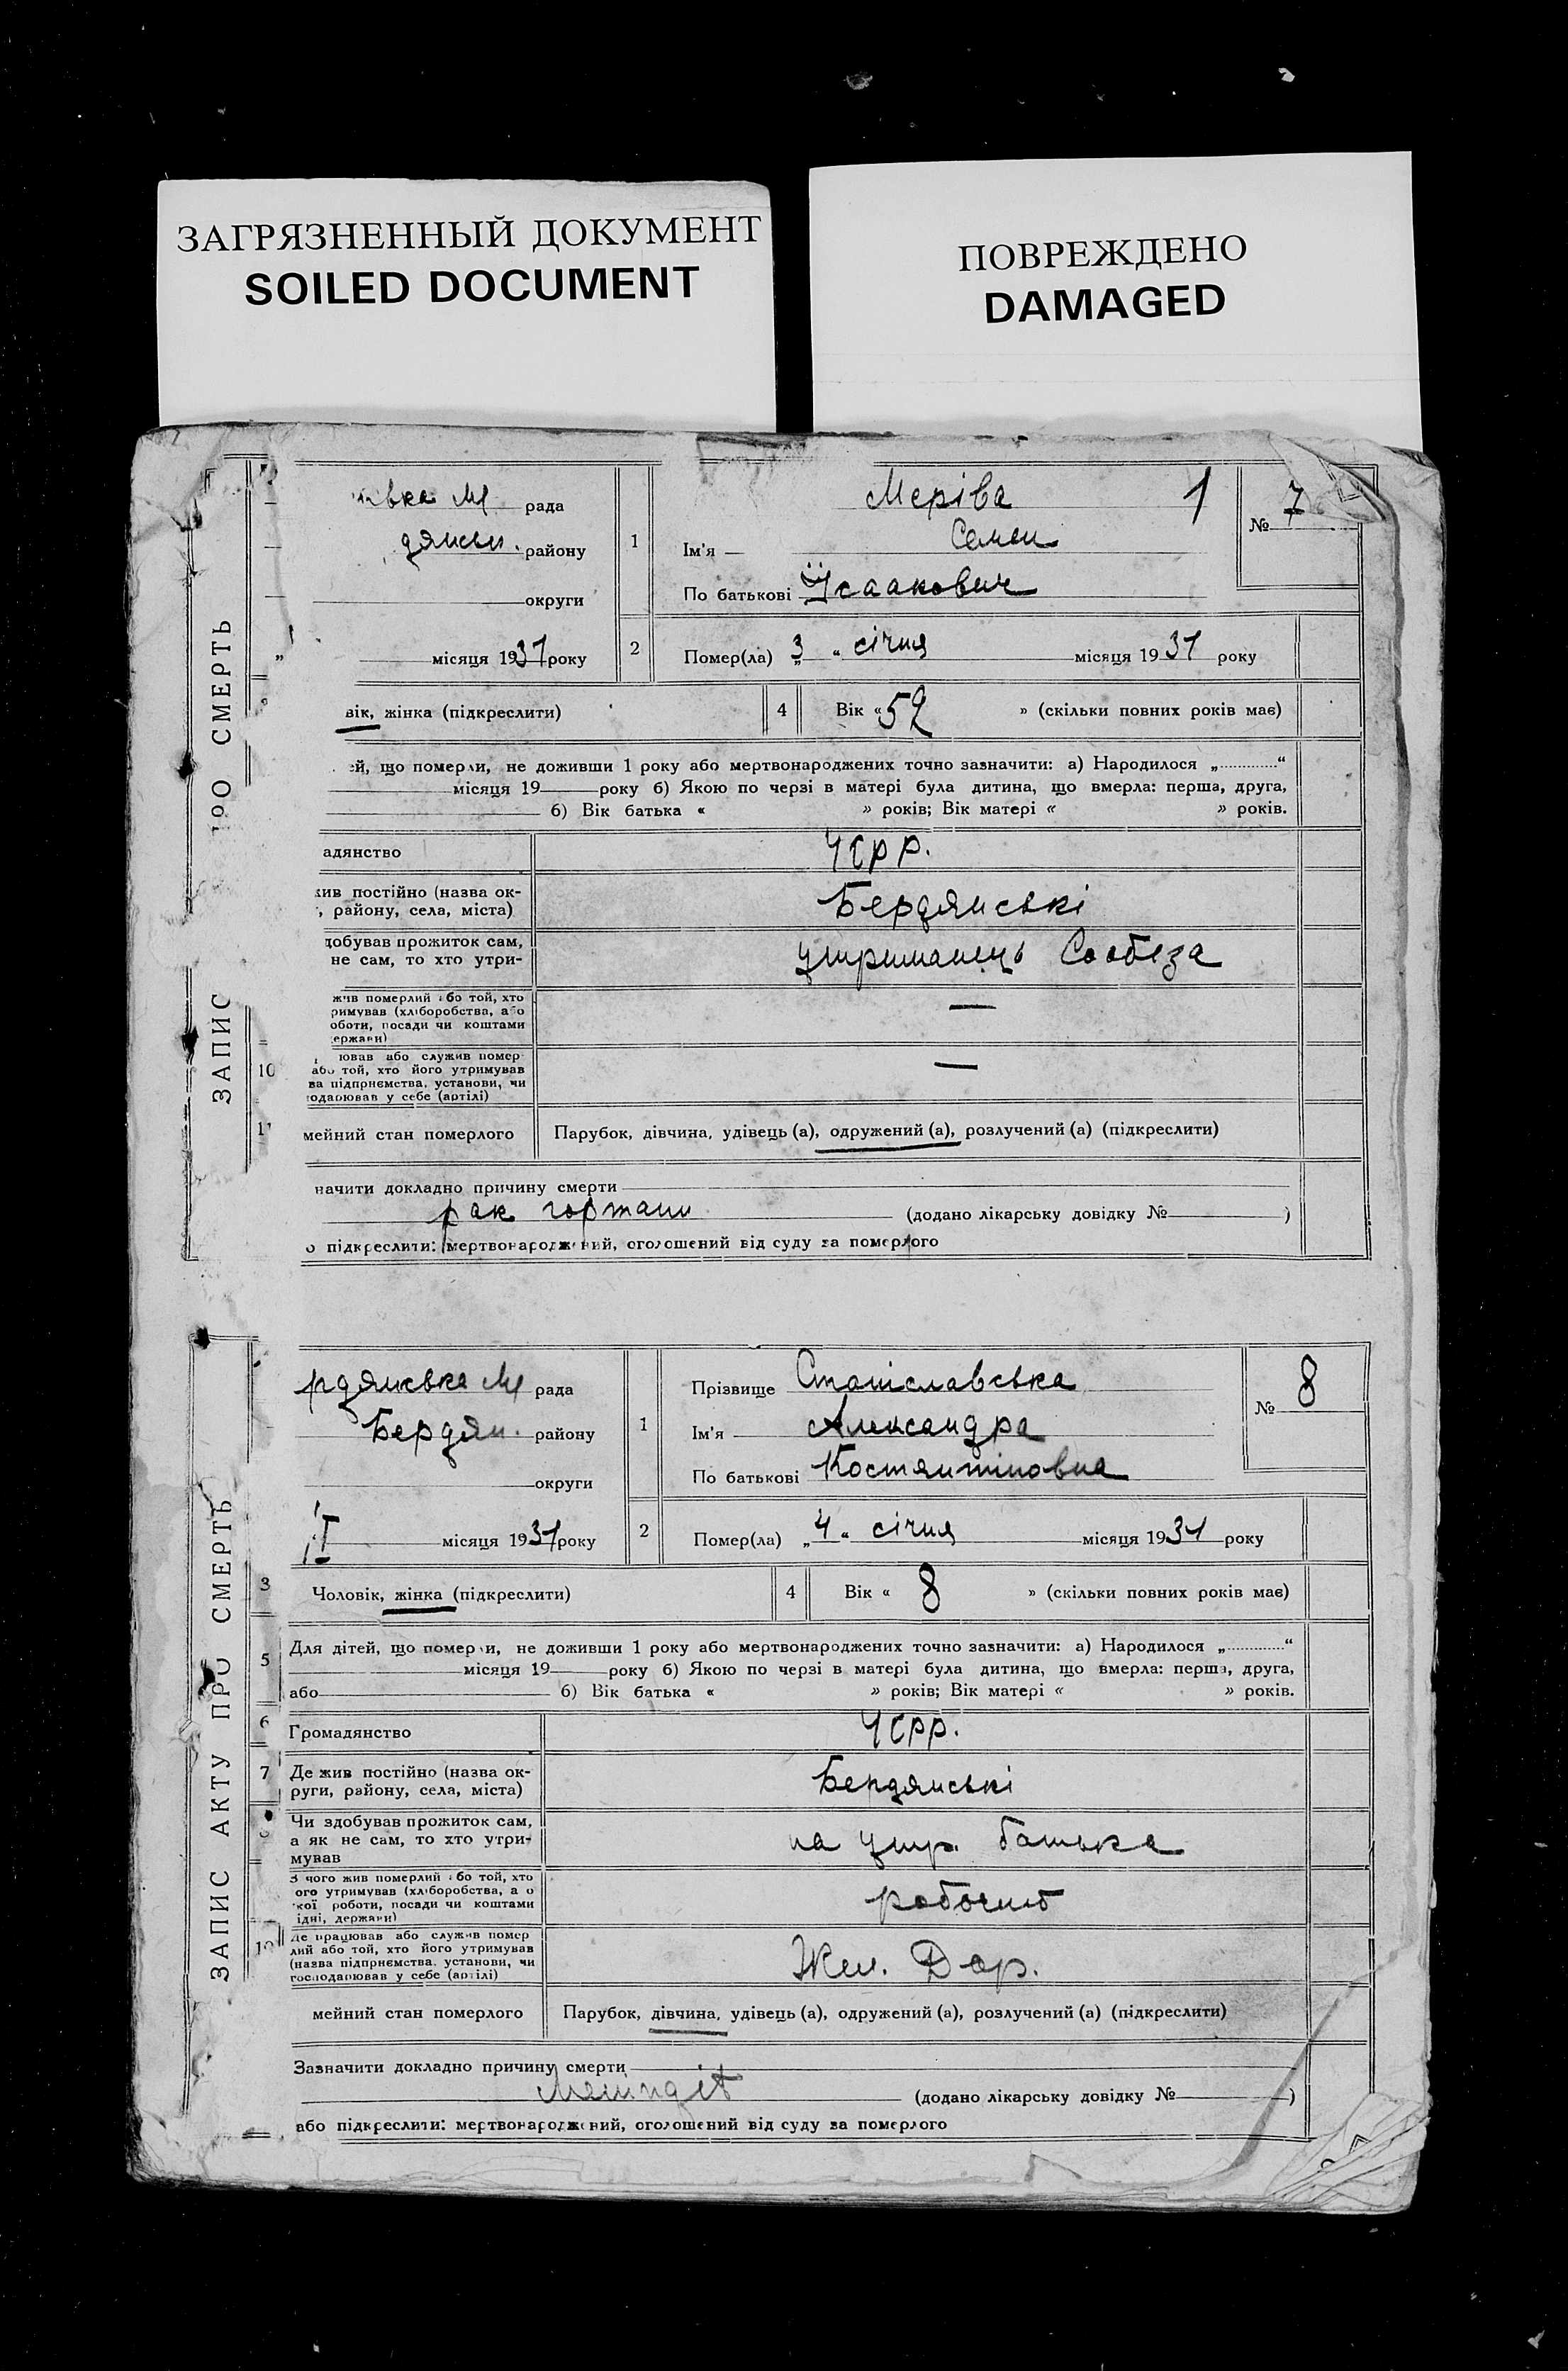 ЗАГРЯЗНЕННЫЙ ДОКУМЕНТ
SOILED DOCUMENT
ПОВРЕЖДЕНО
DAMAGED
РО СМЕРТЬ
ЗАПИС
івка М рада
дянськ. району
округи
„ місяця 1931 року
1
Меріва 1
Ім'я Семен
По батькові Ісаакович
№ 7
2 Помер(ла) „3“ січня місяця 1931 року
вік, жінка (підкреслити)
4 Вік «52» (скільки повних років має)
ей, що померли, не доживши 1 року або мертвонароджених точно зазначити: а) Народилося „.............“
місяця 19 року б) Якою по черзі в матері була дитина, що вмерла: перша, друга,
б) Вік батька « » років; Вік матері « » років.
адянство УСРР.
жив постійно (назва ок-
, району, села, міста) Бердянські
добував прожиток сам,
не сам, то хто утри- утриманець Собеза
жив померлий або той, хто
римував (хліборобства, або
оботи, посади чи коштами
ержави) —
10 ював або служив помер
або той, хто його утримував
ва підприємства, установи, чи
одарював у себе (артілі) —
11 мейний стан померлого Парубок, дівчина, удівець (а), одружений (а), розлучений (а) (підкреслити)
начити докладно причину смерти
рак гортани (додано лікарську довідку № )
о підкреслити: мертвонароджений, оголошений від суду за померлого
ЗАПИС АКТУ ПРО СМЕРТЬ
рдянська М рада
Бердян. району
округи
I місяця 1931 року
1
Прізвище Станіславська
Ім'я Александра
По батькові Костянтіновна
№ 8
2 Помер(ла) „4“ січня місяця 1931 року
3 Чоловік, жінка (підкреслити)
4 Вік «8» (скільки повних років має)
5 Для дітей, що померли, не доживши 1 року або мертвонароджених точно зазначити: а) Народилося „.............“
місяця 19 року б) Якою по черзі в матері була дитина, що вмерла: перша, друга,
або б) Вік батька « » років; Вік матері « » років.
6 Громадянство УСРР.
7 Де жив постійно (назва ок-
руги, району, села, міста) Бердянські
Чи здобував прожиток сам,
а як не сам, то хто утри-
мував на утр. батька
З чого жив померлий або той, хто
ого утримував (хліборобства, а о
кої роботи, посади чи коштами
ідні, держави) робочий
10 Де працював або служив помер
лий або той, хто його утримував
(назва підприємства, установи, чи
господарював у себе (артілі) Жел. Дор.
мейний стан померлого Парубок, дівчина, удівець (а), одружений (а), розлучений (а) (підкреслити)
Зазначити докладно причину смерти
(додано лікарську довідку № )
або підкреслити: мертвонароджений, оголошений від суду за померлого